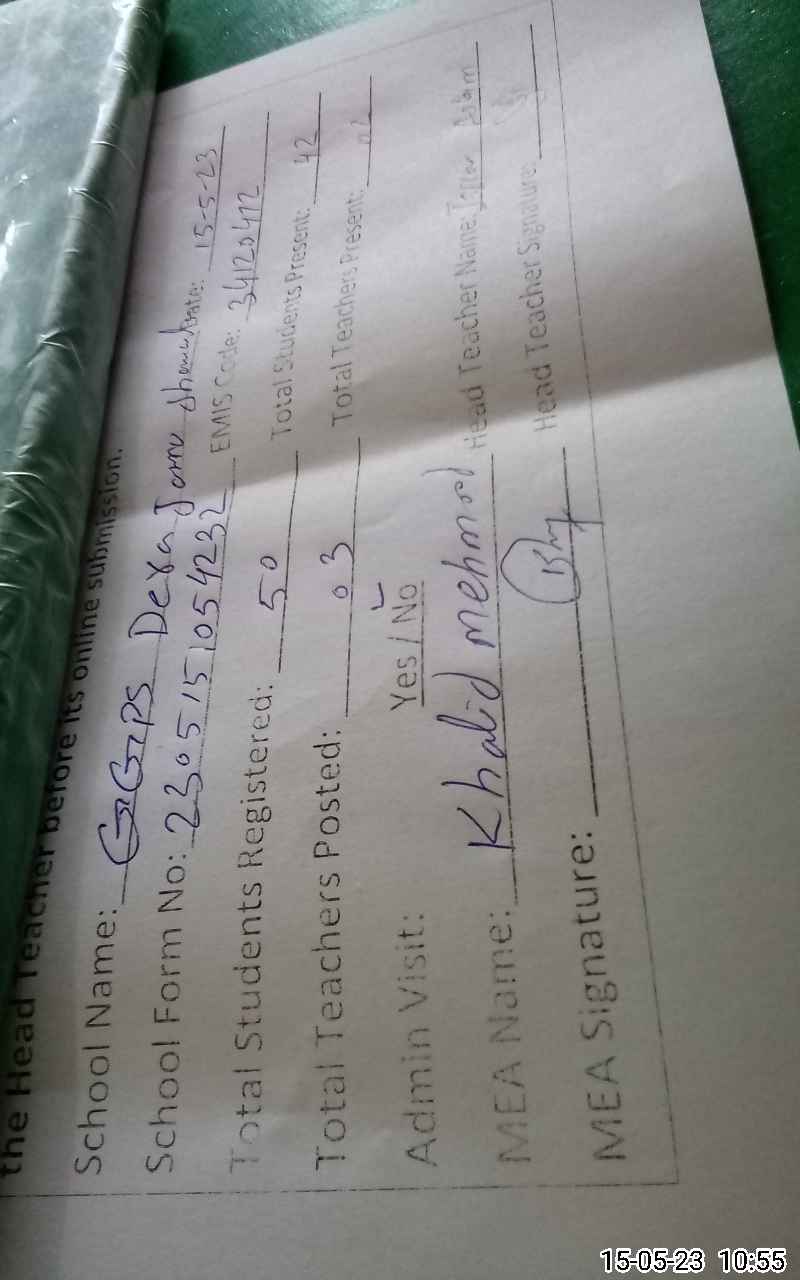 the Head Teacher before its online submission.
School Name: GGPS Dera Jamu Date: 15-5-23
School Form No: 2305151054232 EMIS Code: 34120412
Total Students Registered: 50 Total Students Present: 42
Total Teachers Posted: 03 Total Teachers Present:
Admin Visit: Yes / No
MEA Name: Khalid mehmod Head Teacher Name:
MEA Signature: Head Teacher Signature:
15-05-23 10:55